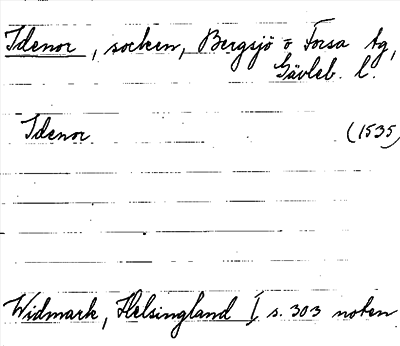 Idenor, socken, Bergsjö o Forsa tg,
Gävleb. l.
Idenor (1535)
Widmark, Helsingland I s. 303 noten